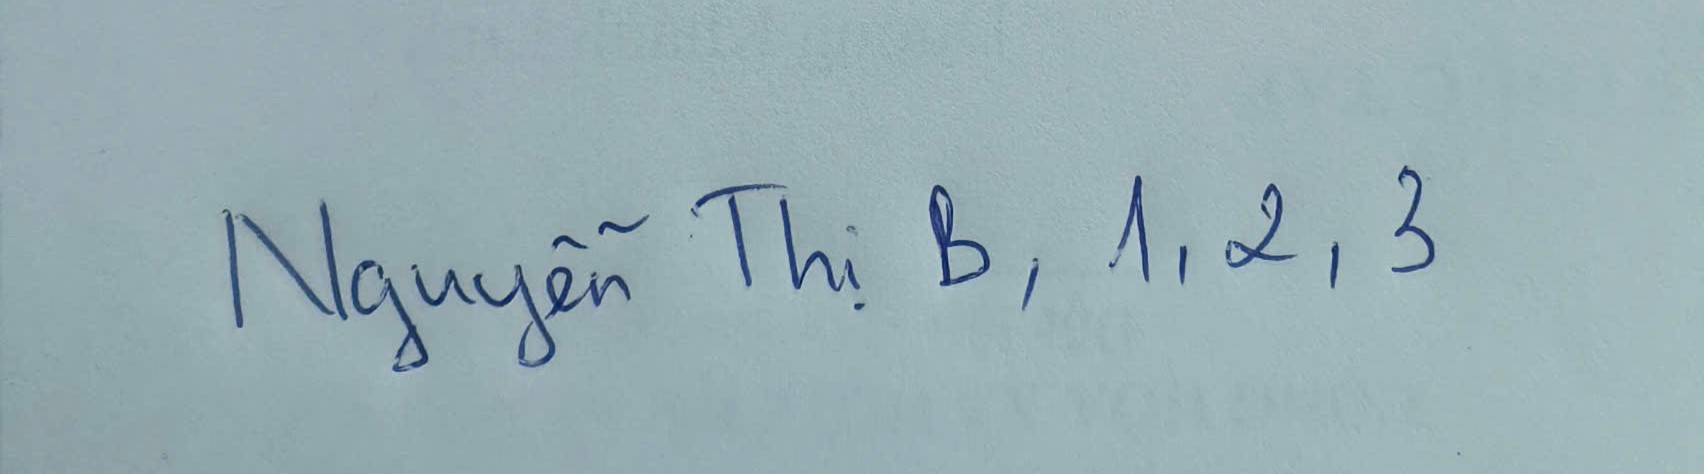 Nguyễn Thị B, 1, 2, 3